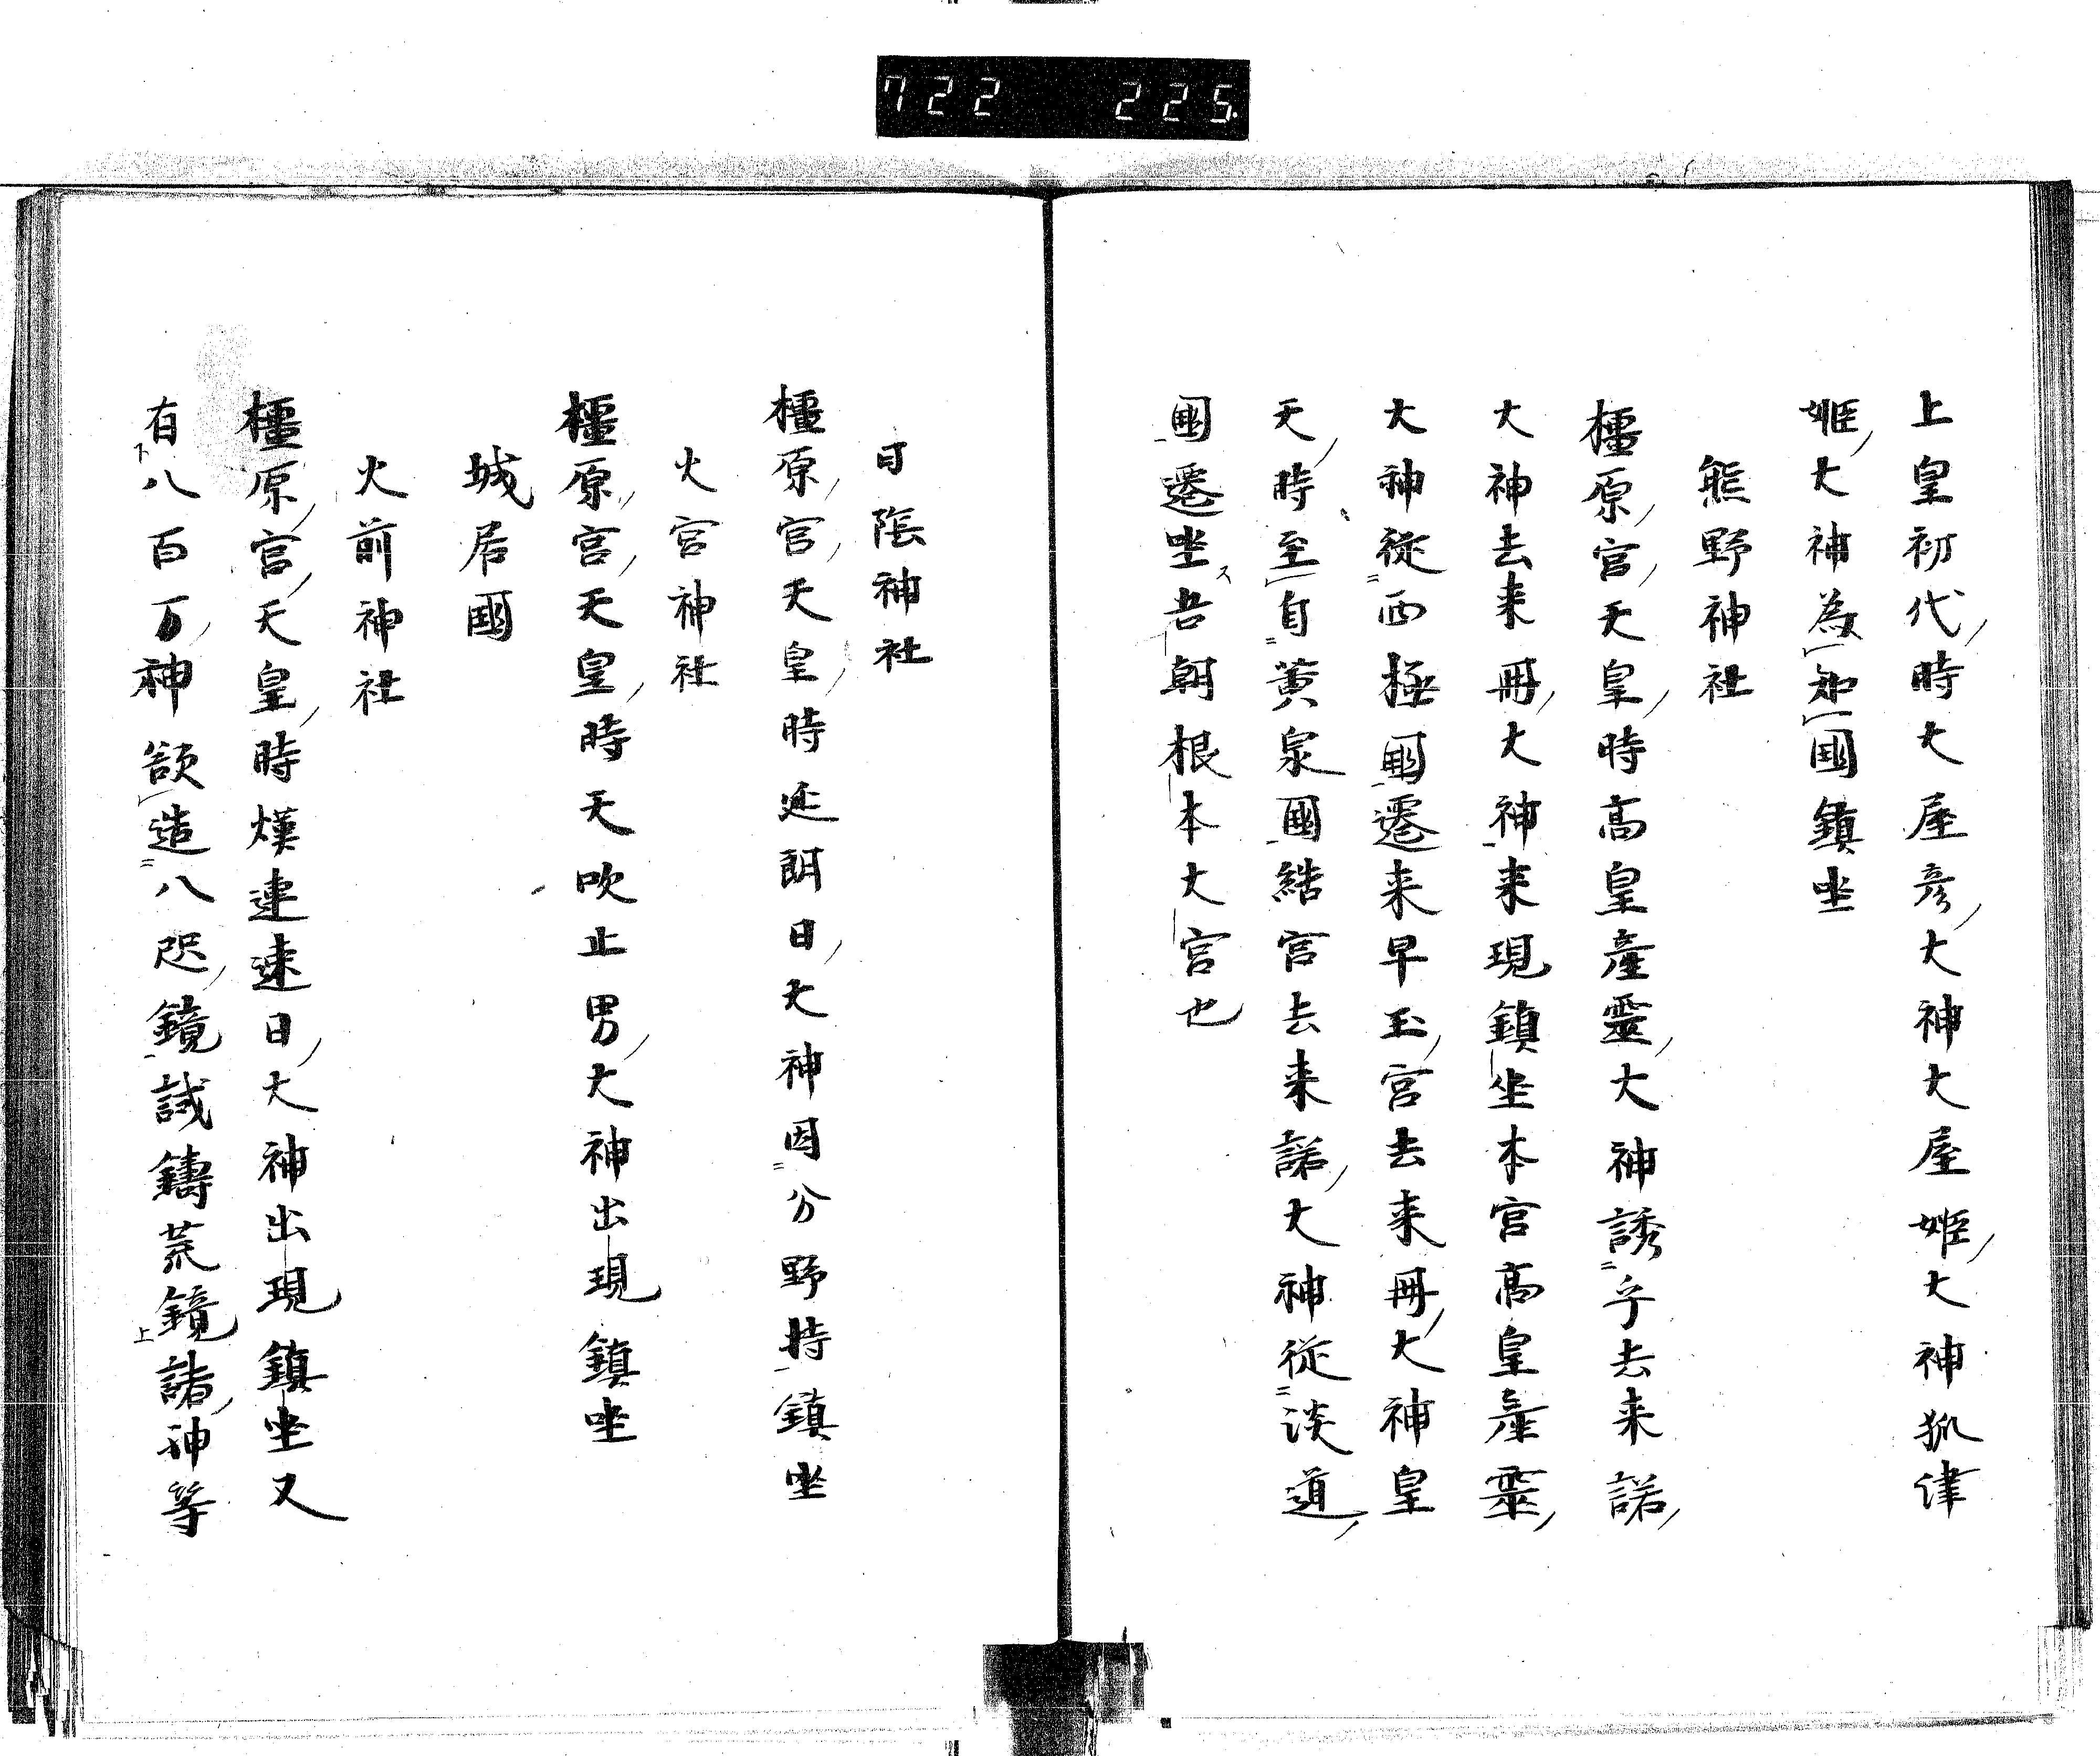 722 225
上皇初代時大屋彦大神大屋姫大神狐津
姫大神為知國鎮坐
熊野神社
橿原宮天皇時高皇産靈大神誘乎去来諾
大神去来冊大神来現鎮坐本宮高皇産靈
大神從西極國遷来早玉宮去来冊大神皇
天時至自黄泉國結宮去来諾大神從淡道
國遷坐吾朝根本大宮也
日陰神社
橿原宮天皇時延朗日大神因分野持鎮坐
火宮神社
橿原宮天皇時天吹止男大神出現鎮坐
城居國
火前神社
橿原宮天皇時熯速日大神出現鎮坐又
有八百万神欲造八咫鏡試鑄荒鏡諸神等